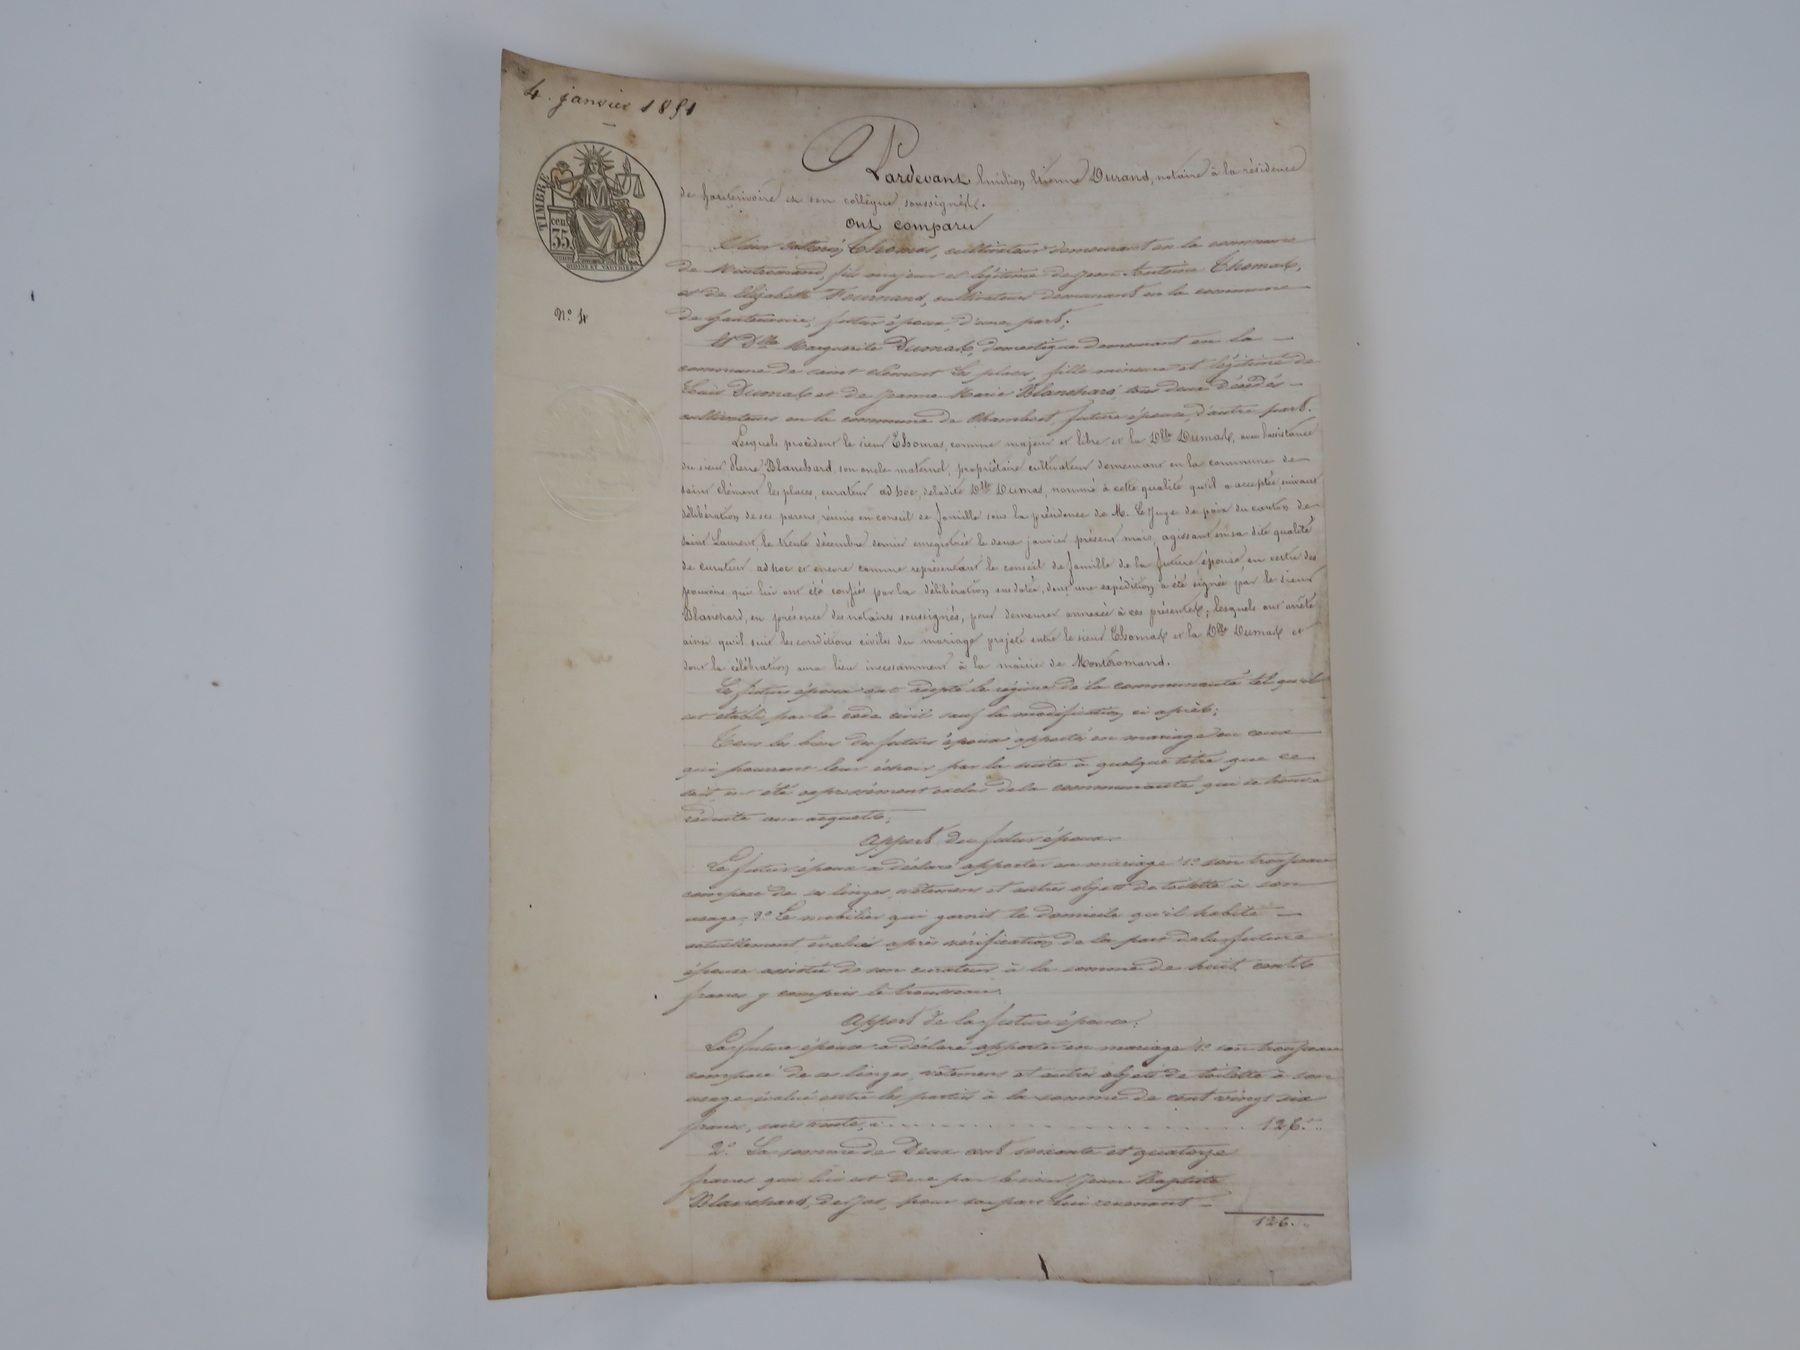 4. janvier 1851
TIMBRE
cen
35
Nº 4
Pardevant Emilien Etienne Durand, notaire à la résidence
de hauterivoire et son collègue, soussignés.
Ont comparu
Antoine Thomas, cultivateur demeurant en la commune
de Montromand, fils majeur et légitime de Jean Antoine Thomas,
et de Elizabeth Fournand, cultivateurs demeurant en la commune
de hauterivoire, futur époux, d'une part;
Et Dlle Marguerite Dumas, domestique demeurant en la
commune de saint clément les places, fille mineure et légitime de
Dumas et de Jeanne Marie Blanchard, tous deux décédés
cultivateurs en la commune de Chambost, future épouse, d'autre part.
Lesquels procèdent le sieur Thomas, comme majeur et libre et la Dlle Dumas, avec l'assistance
du sieur Pierre Blanchard, son oncle maternel, propriétaire cultivateur demeurant en la commune de
saint clément les places, curateur ad hoc, deladite Dlle Dumas, nommé à cette qualité qu'il a acceptée, suivant
délibération de ses parens réunis en conseil de famille sous la présidence de M. le Juge de paix du canton de
saint Laurent, le trente décembre dernier enregistrée le deux janvier présent mois, agissant en sa dite qualité
de curateur ad hoc et encore comme représentant le conseil de famille de la future épouse, en vertu des
pouvoirs qui lui ont été confiés par la délibération sus datée, dont une expédition a été signée par le sieur
Blanchard, en présence des notaires soussignés, pour demeurer annexée à ces présentes; lesquels ont arrêté
ainsi qu'il suit les conditions civiles du mariage projeté entre le sieur Thomas et la Dlle Dumas et
dont la célébration aura lieu incessamment à la mairie de Montromand.
Les futurs époux ont adopté le régime de la communauté tel qu'il
est établi par le code civil sauf la modification ci après;
Tous les biens des futurs époux apportés en mariage ou ceux
qui pourront leur échoir par la suite à quelque titre que ce
soit, ont été expressément exclus de la communauté qui se trouve
réduite aux acquets;
Apport du futur époux.
Le futur époux a déclaré apporter en mariage 1º son trousseau
composé de ses linges, vêtemens et autres objets de toilette à son
usage; 2º Le mobilier qui garnit le domicile qu'il habite
actuellement évalué après vérification de la part de la future
épouse assistée de son curateur à la somme de huit cents
francs y compris le trousseau.
Apport de la future épouse.
La future épouse a déclaré apporter en mariage 1º son trousseau
composé de ses linges, vêtemens et autres objets de toilette à son
usage évalué entre les parties à la somme de cent vingt six
francs, sans vente, ci . . . . . . . . . . 126.
2º La somme de Deux cent soixante et quatorze
francs qui lui est due par le sieur Jean Baptiste
Blanchard, de Jas, pour sa part lui revenant
126.